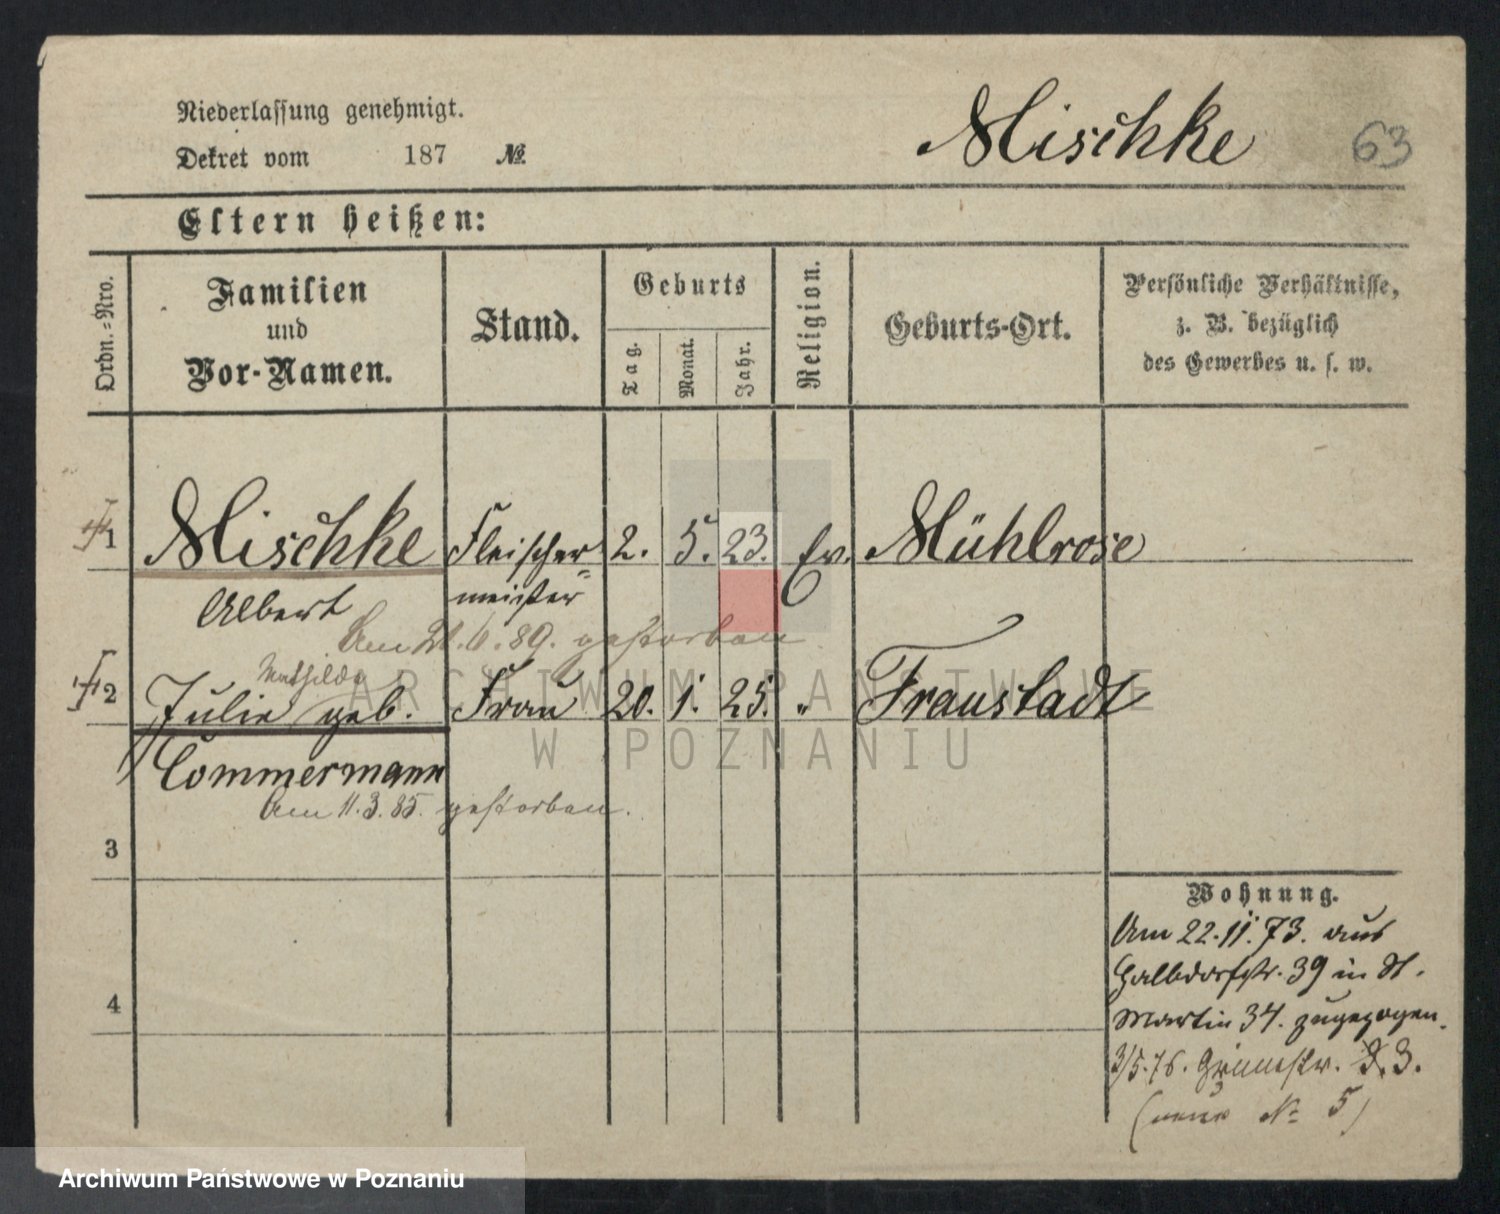 Niederlassung genehmigt.
Mischke
63
Dekret vom 187 №
Eltern heißen:
Ordn.=Nro.
Familien
und
Vor-Namen.
Stand.
Geburts
Tag.
Monat.
Jahr.
Religion.
Geburts-Ort.
Persönliche Verhältnisse,
z. B. bezüglich
des Gewerbes u. s. w.
1 Mischke Fleischer= 2. 5. 23. Ev. Mühlrose
Albert meister
Am 21.6.89. gestorben
Mathilde
2 Julie geb. Frau 20. 1. 25. " Fraustadt
Commermann
Am 11.3.85. gestorben.
3
4
Wohnung.
Am 22.11.73. aus
Halbdorfstr. 39 in St.
Martin 34. zugezogen.
3/5.76. Grünestr. 3.
(neue № 5)
ARCHIWUM PAŃSTWOWE
W POZNANIU
Archiwum Państwowe w Poznaniu